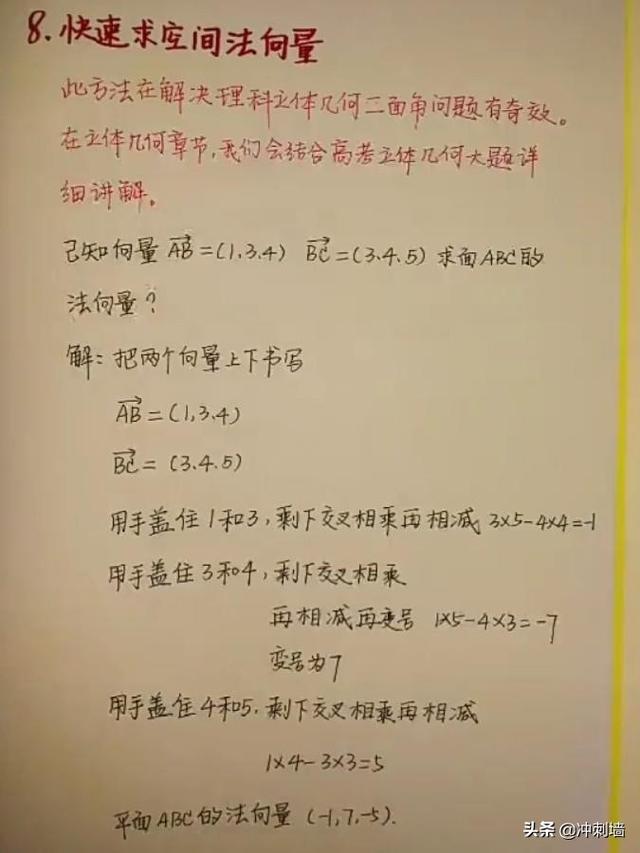 8.快速求空间法向量
此方法在解决理科立体几何二面角问题有奇效。
在立体几何章节,我们会结合高考立体几何大题详
细讲解。
已知向量 AB=(1.3.4) BC=(3.4.5) 求面ABC的
法向量?
解:把两个向量上下书写
AB=(1,3.4)
BC=(3.4.5)
用手盖住1和3,剩下交叉相乘再相减 3×5-4×4=-1
用手盖住3和4,剩下交叉相乘
再相减再变号 1×5-4×3=-7
变号为7
用手盖住4和5,剩下交叉相乘再相减
1×4-3×3=5
平面ABC的法向量 (-1,7,-5).
头条 @冲刺墙